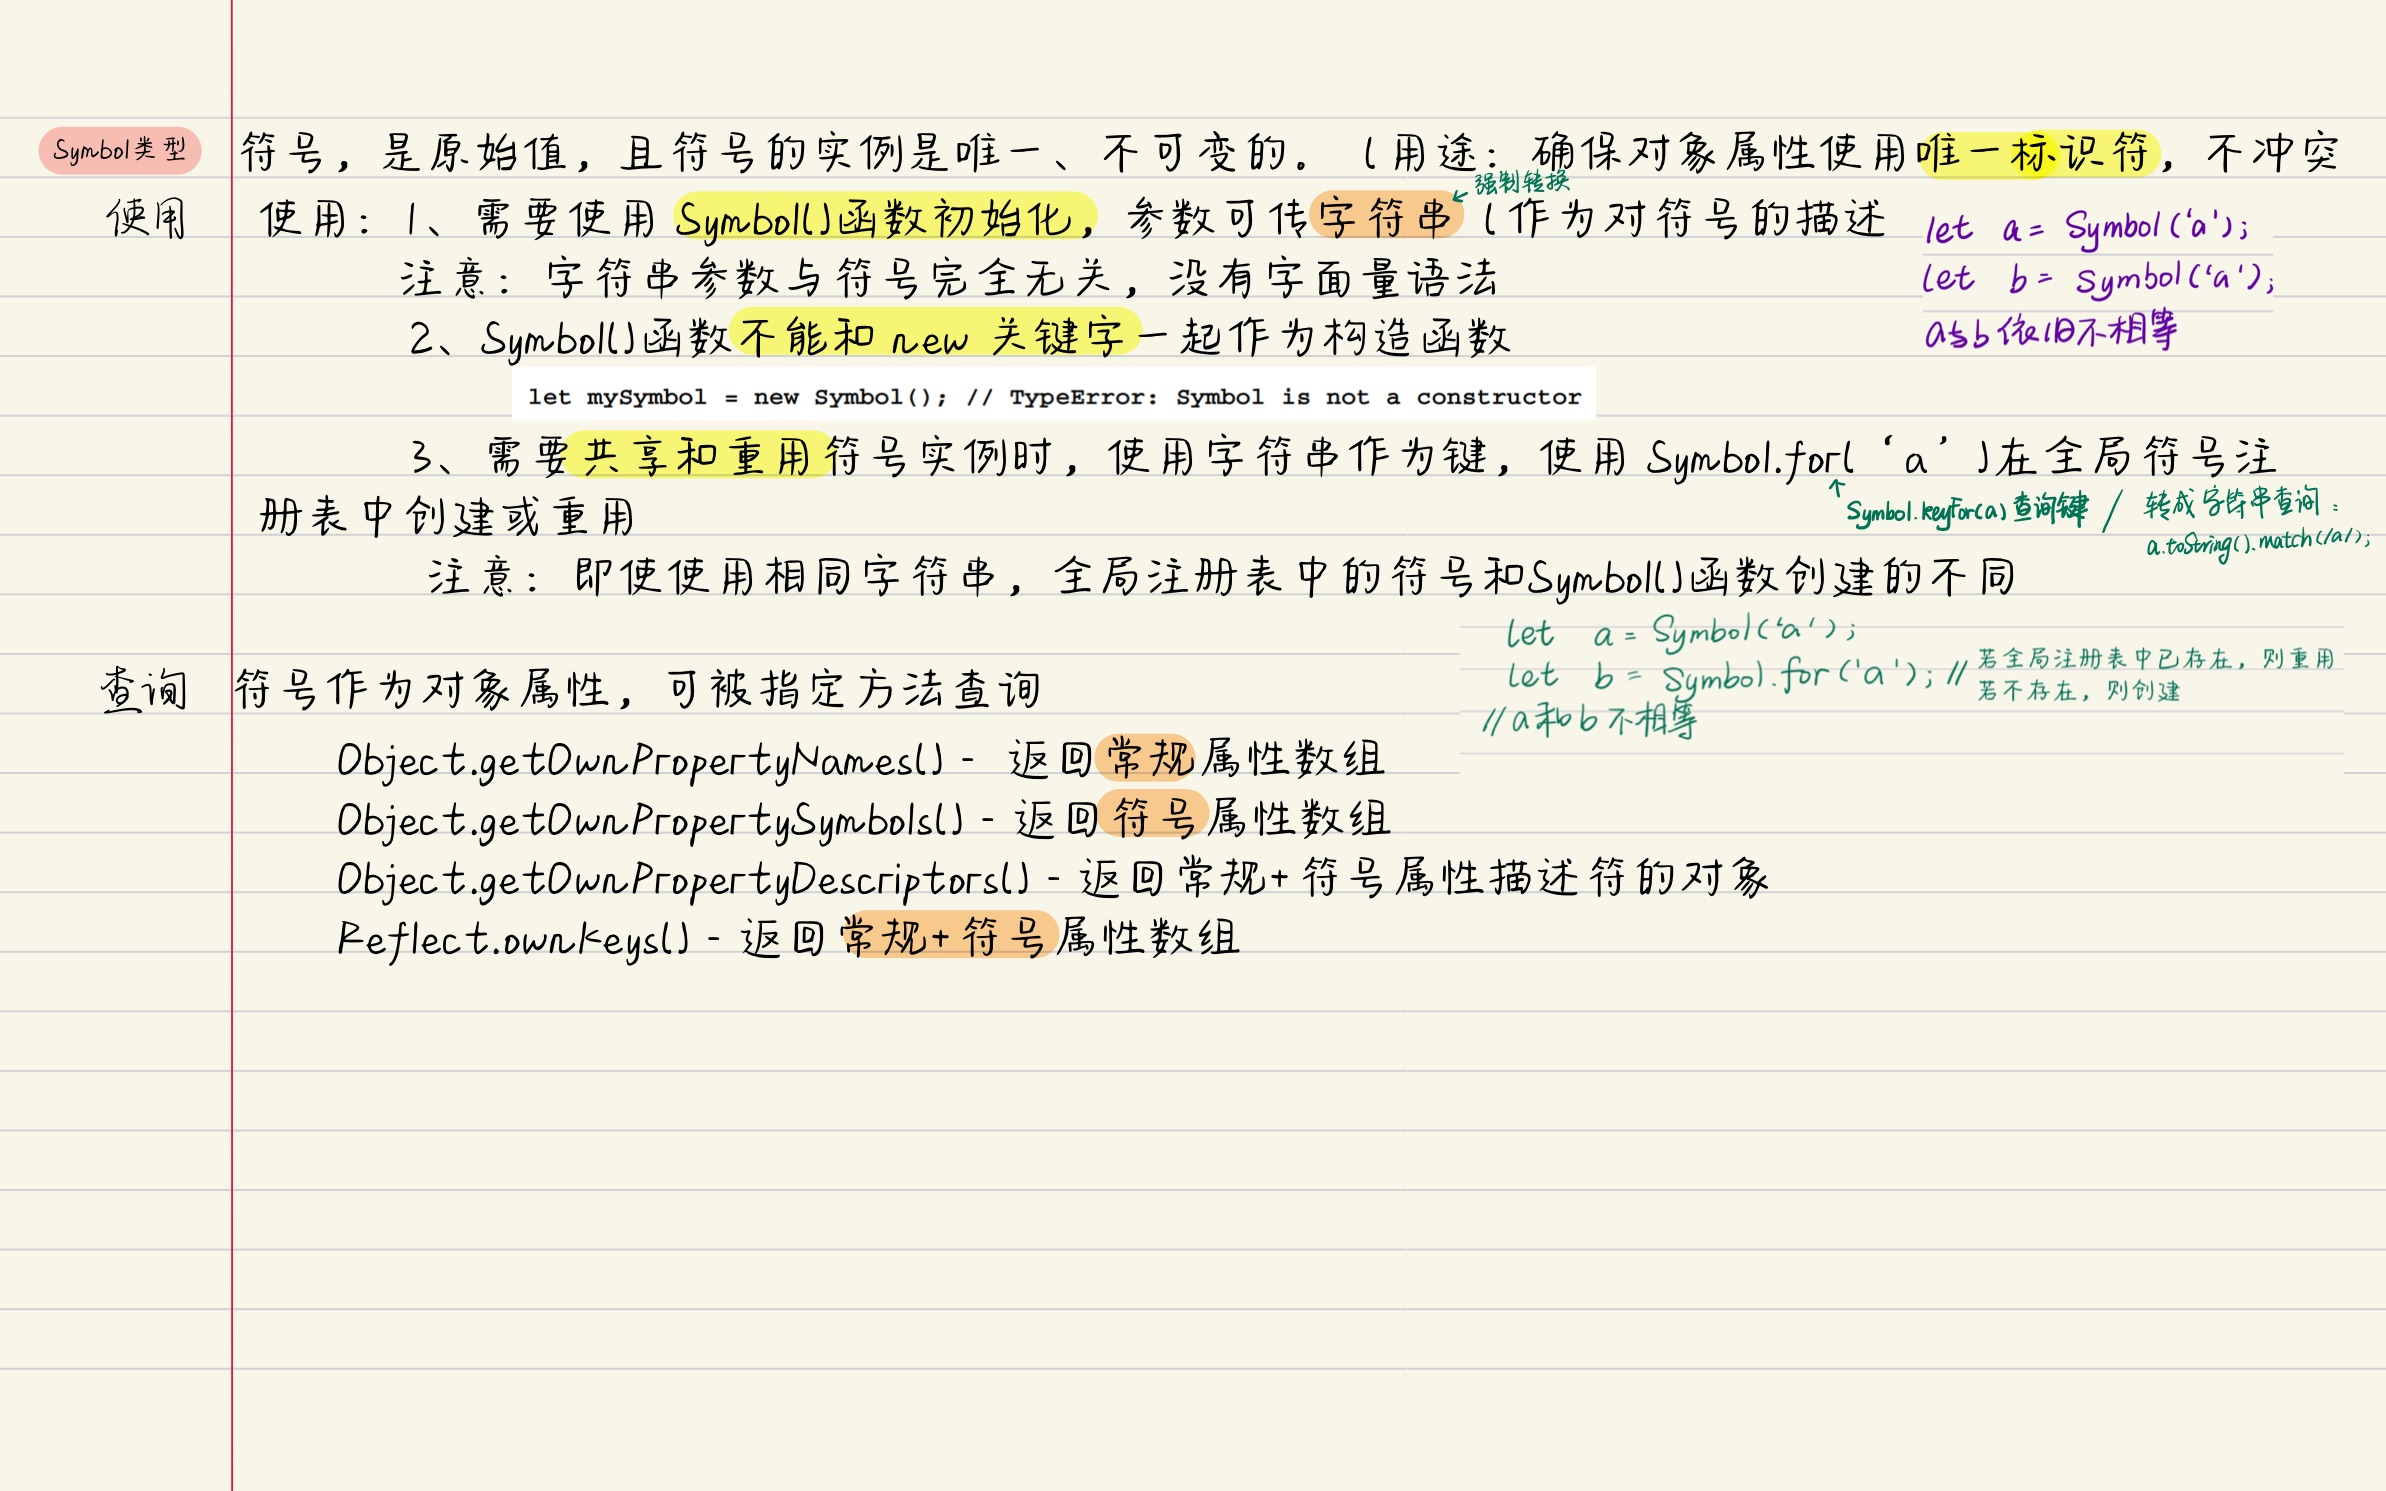 Symbol类型 符号，是原始值，且符号的实例是唯一、不可变的。（用途：确保对象属性使用唯一标识符，不冲突
强制转换
使用 使用：1、需要使用 Symbol()函数初始化，参数可传字符串（作为对符号的描述
let a = Symbol('a');
注意：字符串参数与符号完全无关，没有字面量语法
let b = Symbol('a');
2、Symbol()函数不能和 new 关键字一起作为构造函数
a与b依旧不相等
let mySymbol = new Symbol(); // TypeError: Symbol is not a constructor
3、需要共享和重用符号实例时，使用字符串作为键，使用 Symbol.for(‘a’)在全局符号注
册表中创建或重用
↑ Symbol.keyFor(a) 查询键 / 转成字符串查询：
a.toString().match(/a/);
注意：即使使用相同字符串，全局注册表中的符号和Symbol()函数创建的不同
let a = Symbol('a');
let b = Symbol.for('a'); // 若全局注册表中已存在，则重用
若不存在，则创建
// a和b不相等
查询 符号作为对象属性，可被指定方法查询
Object.getOwnPropertyNames() - 返回常规属性数组
Object.getOwnPropertySymbols() - 返回符号属性数组
Object.getOwnPropertyDescriptors() - 返回常规+符号属性描述符的对象
Reflect.ownKeys() - 返回常规+符号属性数组